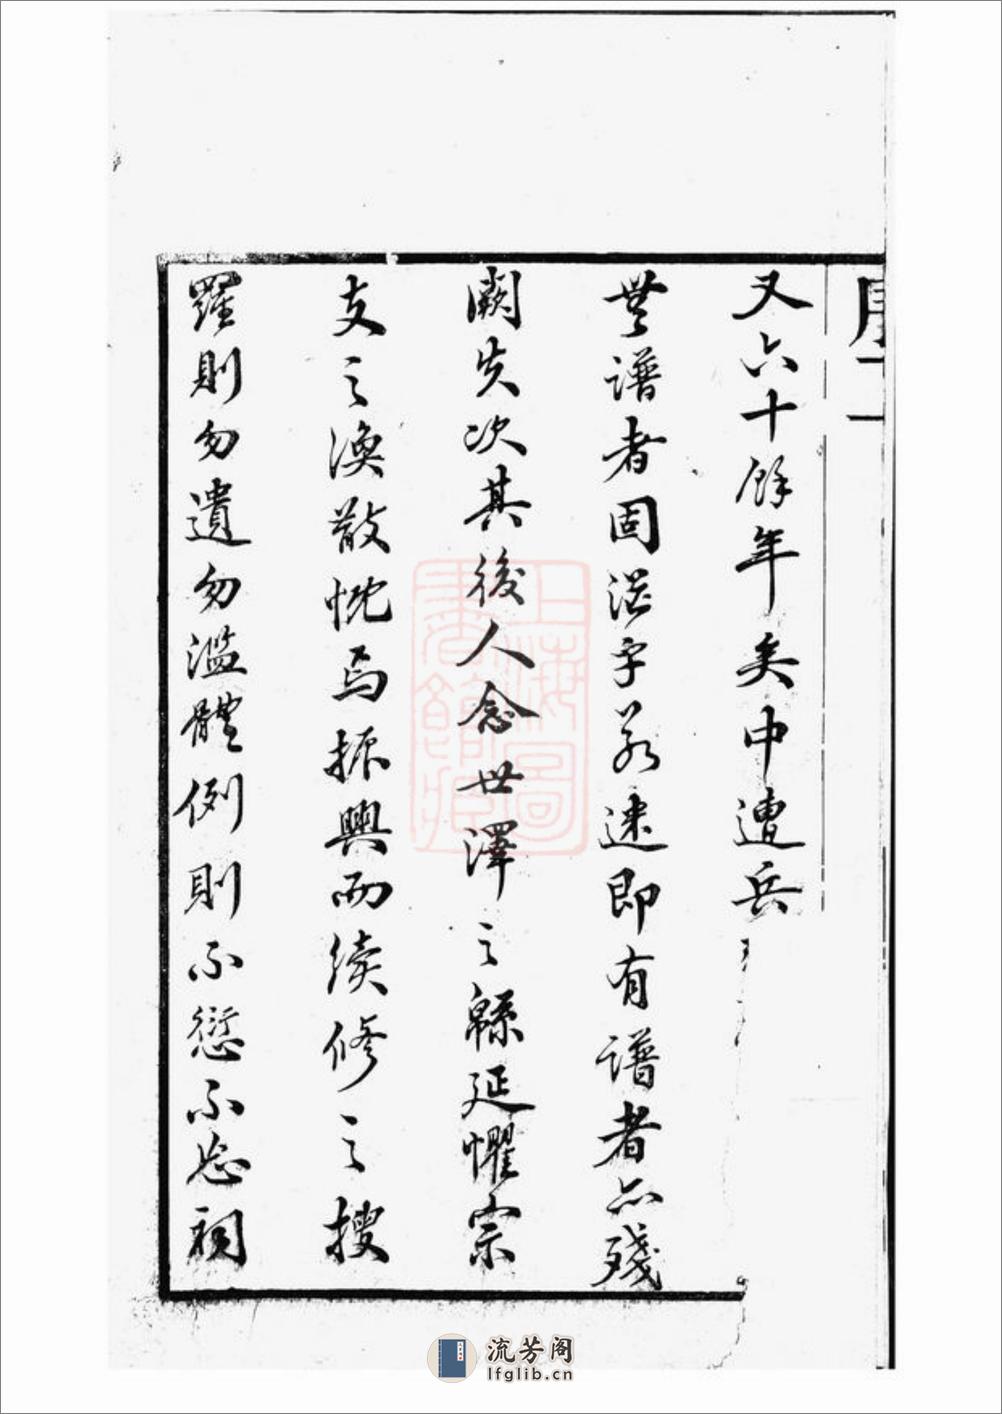 序二
又六十餘年矣中遭兵
無譜者固茫乎若迷即有譜者亦殘
闕失次其後人念世澤之緜延懼宗
支之渙散慨焉振興而續修之搜
羅則勿遺勿濫體例則不愆不忘祠
上海圖書館藏
流芳阁
lfglib.cn